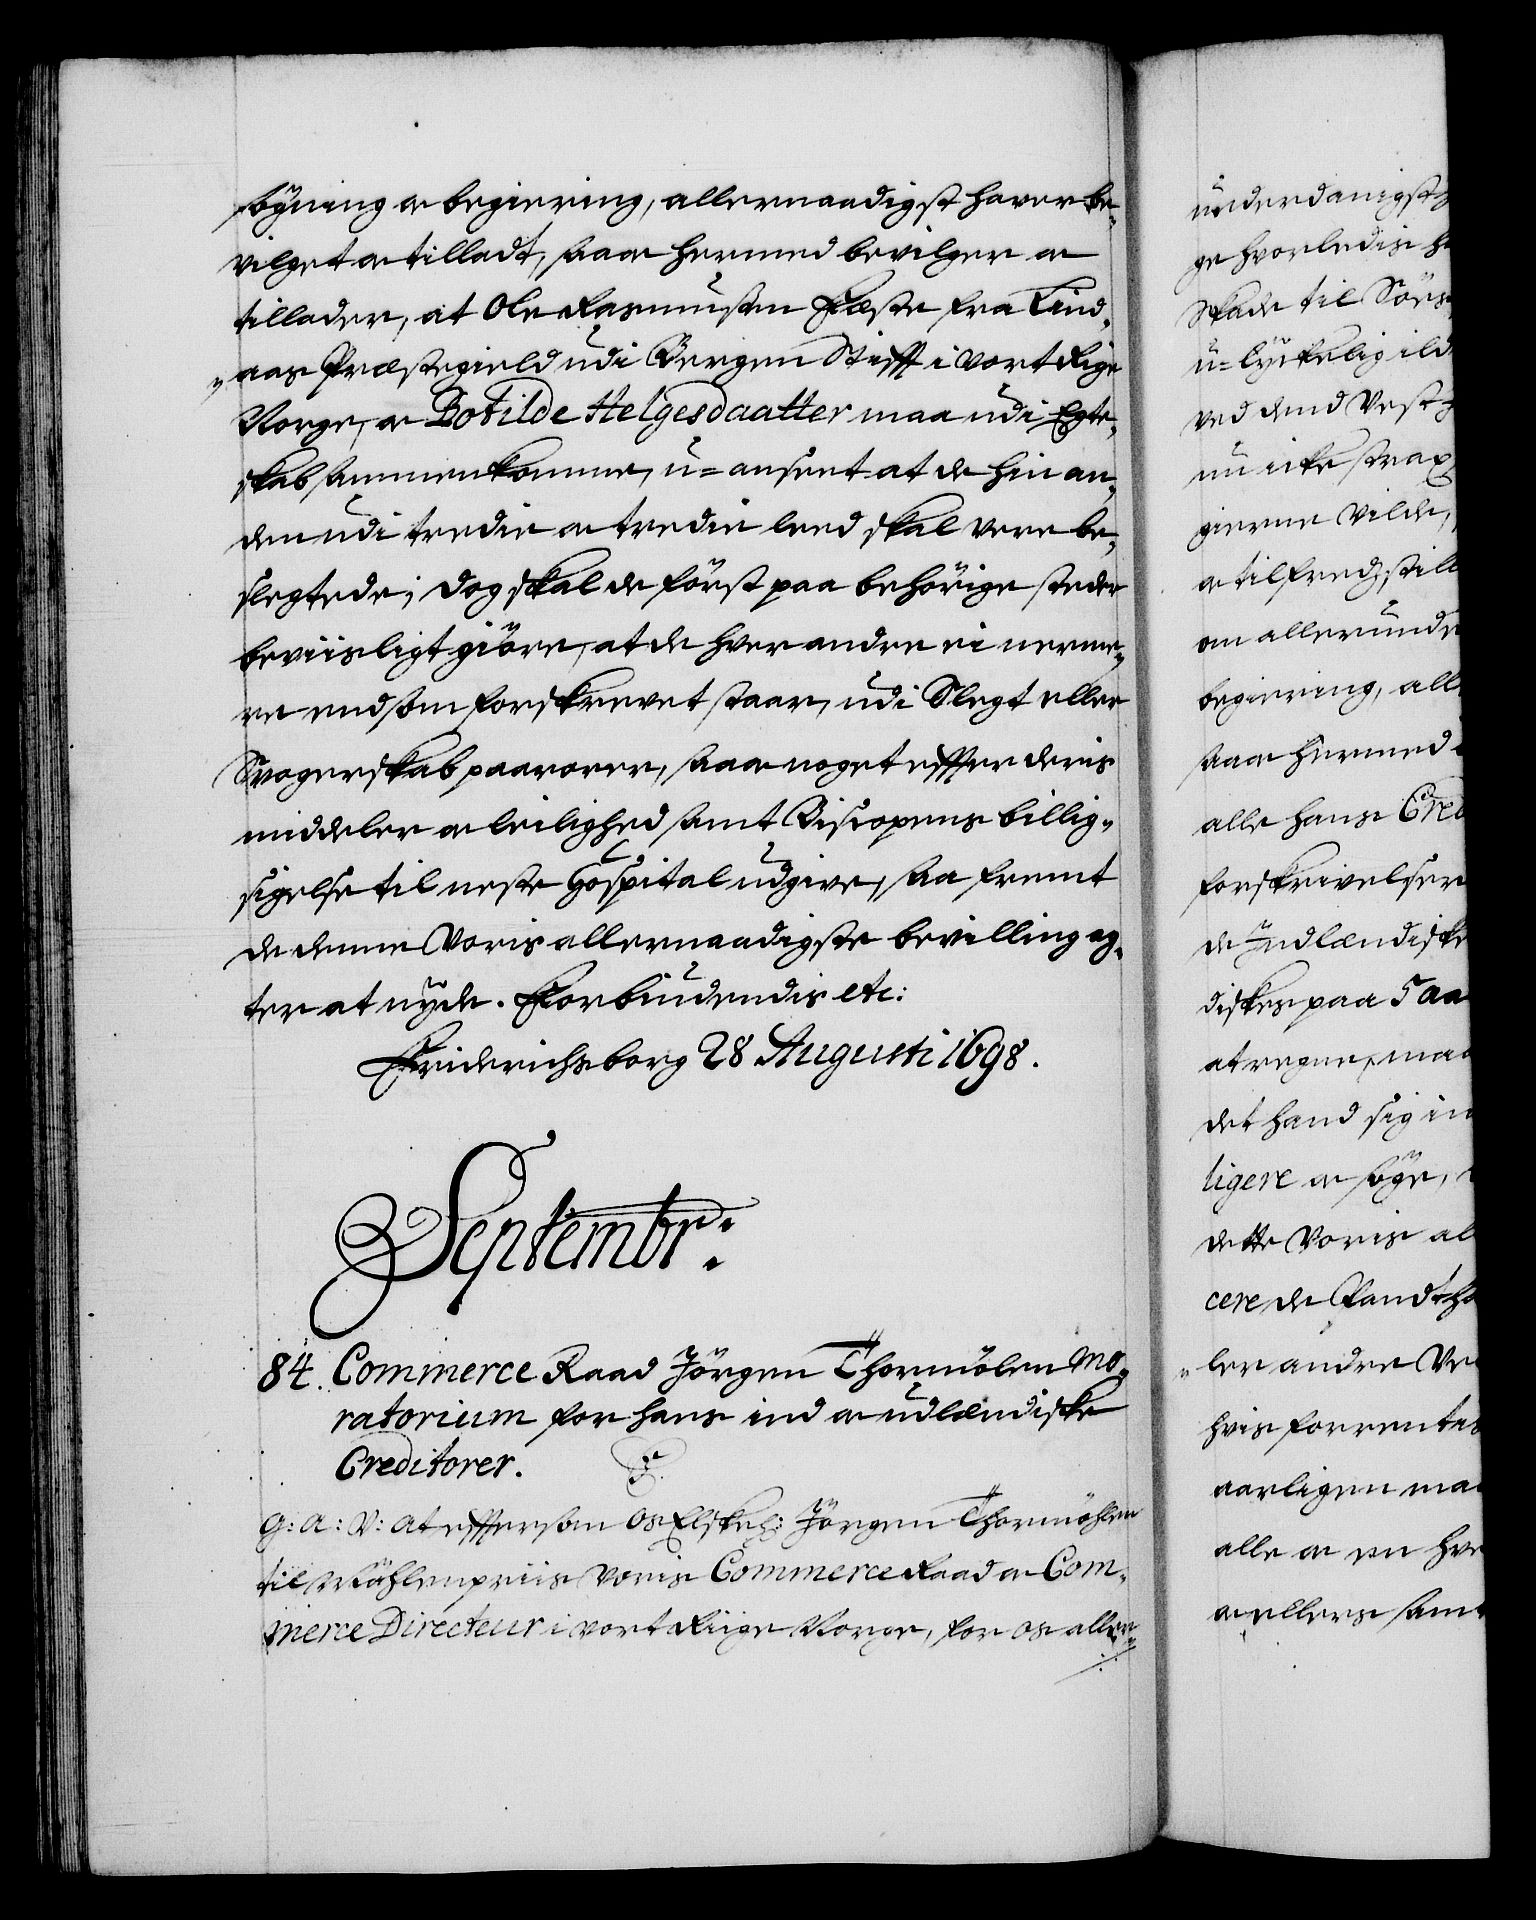 søgning og begiering, allernaadigst haver be„
vilget og tilladt, saa og hermed bevilger og
tillader, at Ole Rasmussen Feste fra Lind„
„aas Præstegield udi Bergen Stifft i vort Rige
Norge, og Botilde Helgesdaatter maa udi Egte„
skab sammenkomme, u=anseet at de hin an„
den udi tredie og tredie leed skal vere be„
slegtede; dog skal de først paa behørige steder
beviisligt giøre, at de hver andre ei nerme„
re end som forskrevet staar, udi Slegt eller
Svogerskab paarører, saa og noget effter deris
middeler og leilighed samt Biscopens billig„
sigelse til neste Hospital udgive, saa fremt
de denne Voris allernaadigste bevilling ag„
ter at nyde. Forbiudendis etc:
Friderichsborg 28 Augusti 1698.
Septembr:
84. Commerce Raad Jørgen Thormølen Mo„
ratorium for hans ind og udlændiske
Creditorer.
G: A: V: at efftersom Os Elskel: Jørgen Thormøhlen
til Møhlenpriis Voris Commerce Raad og Com„
merce Directeur i vort Riige Norge, for os aller„
underdanigst
ge hvorledis
Skade til Søes
u=lyckelig ild
ved dend Vest
nu icke strax
gierne vilde,
og tilfredsstill
om allerunde
begiering, all
saa og hermed
alle hans Cred
forskrivelser
de Indlændiske
diskes paa 5 aa
at regne, maa
det hand sig in
ligere og søge,
dette Voris al
cere de Pandtha
„ler andre Ve
hvis forrentes
aarligen ma
alle og en hve
og ellers samt